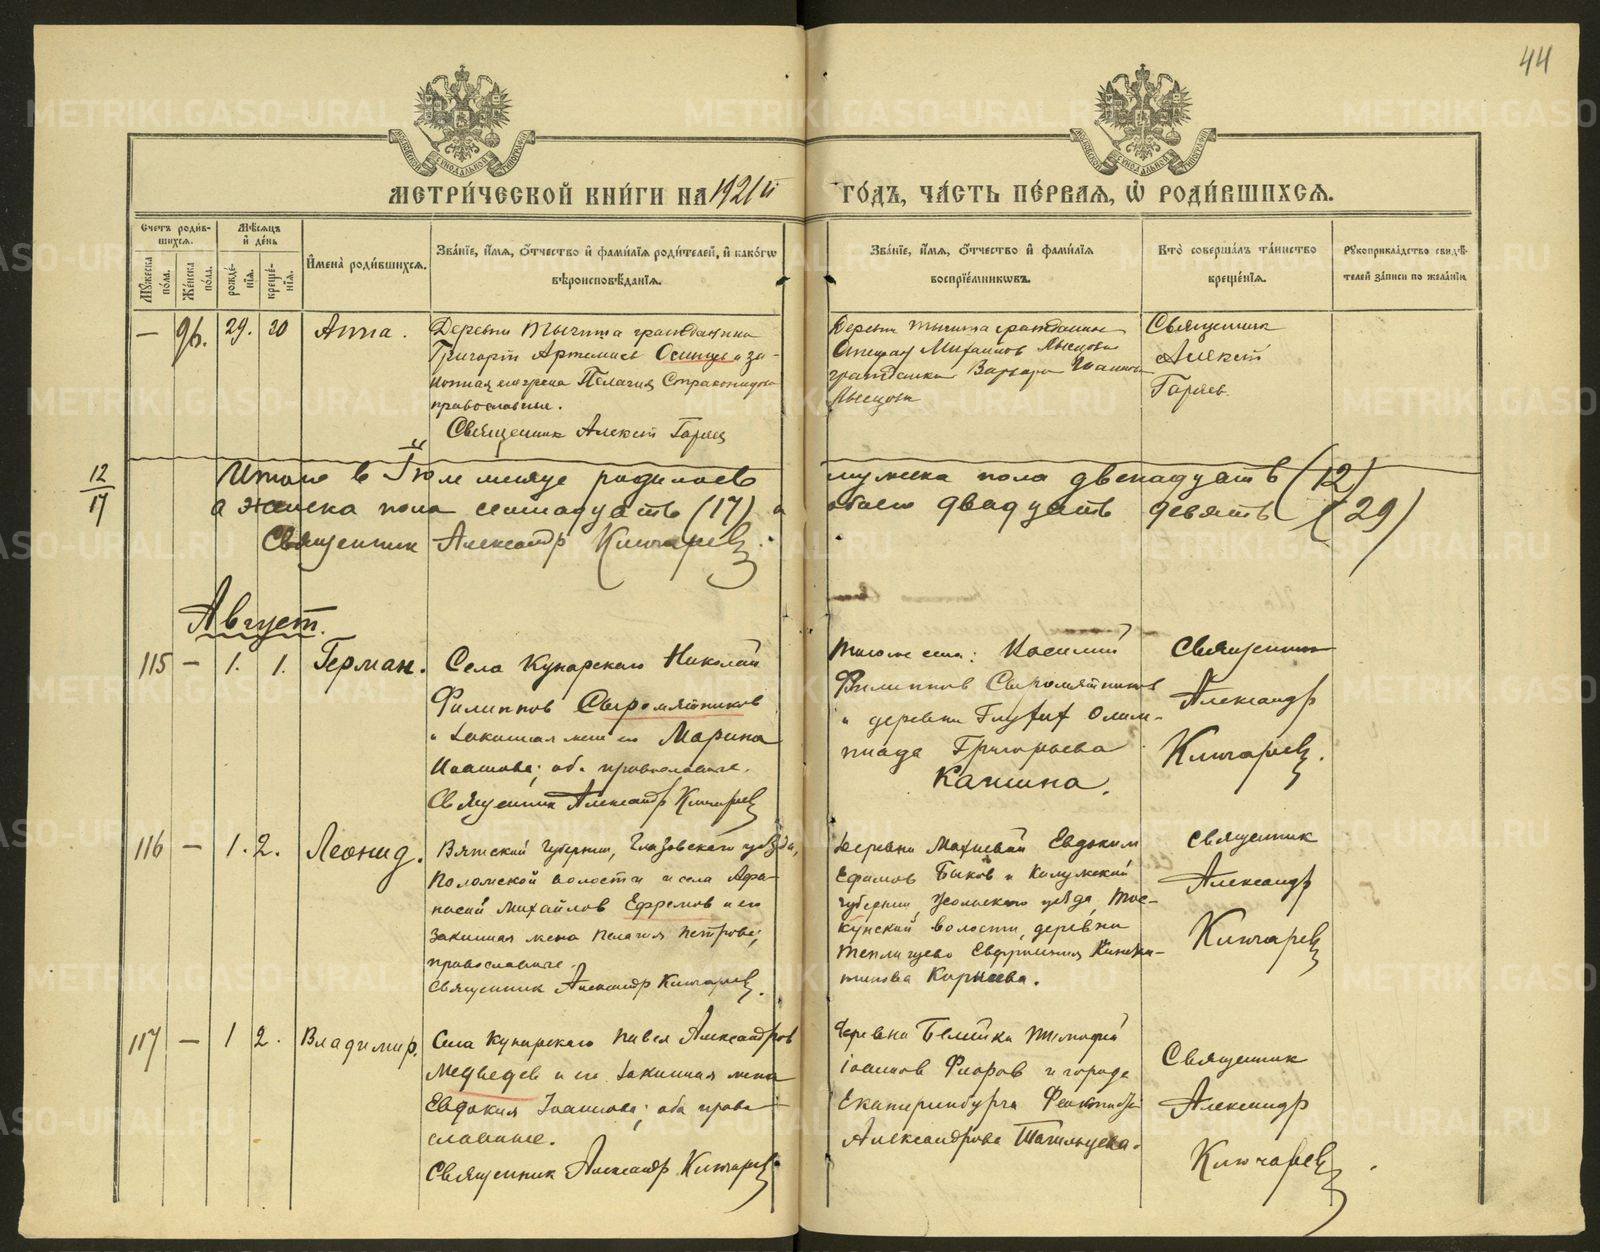 44
МЕТРИ́ЧЕСКОЙ КНИ́ГИ НА 1921й ГО́ДЪ, ЧА́СТЬ ПЕ́РВАЯ, Ѡ РОДИ́ВШИХСЯ.
Счетъ роди́вшихся.
Му́жеска по́ла.
Же́нска по́ла.
Мѣ́сяцъ и де́нь
рожде́нія.
креще́нія.
Имена̀ роди́вшихся.
Зва́ніе, и́мя, о́тчество и фами́лія роди́телей, и како́гѡ
вѣроисповѣ́данія.
Зва́ніе, и́мя, о́тчество и фами́лія
воспріе́мникѡвъ.
Кто̀ соверша́лъ та́инство
креще́нія.
Рукоприкла́дство свидѣ́
телей за́писи по жела́нію.
— 96. 29. 30 Анна.
Деревни гражданин
Григорий Артемиев Осинцев и за-
конная его жена Пелагия
православные.
Священник Алексий Гаряев
Деревни гражданин
Стефан Михаилов
гражданка Варвара
Священник
Алексий
Гаряев.
12
17
Итого в Июле месяце родилось мужска пола двенадцать (12)
а женска пола семнадцать (17) а обоего двадцать девять (29)
Священник Александр Ключарев.
Август.
115 — 1. 1. Герман.
Села Кунарскаго Николай
Филиппов Сыромятников
и законная жена его Марина
Иоаннова; оба православные.
Священник Александр Ключарев
Того же села: Василий
Филиппов Сыромятников
и деревни Олим-
пиада Григорьева
Кашина.
Священник
Александр
Ключарев.
116 — 1. 2. Леонид.
Вятской губернии, Глазовскаго уезда,
Поломской волости и села Афа-
насий Михайлов Ефремов и его
законная жена Пелагия Петрова;
православные.
Священник Александр Ключарев.
Деревни Евдоким
Ефимов Быков и Калужской
губернии, уезда,
волости, деревни
Священник
Александр
Ключарев
117 — 1 2. Владимир.
Села Кунарскаго Павел Александров
Медведев и его законная жена
Евдокия Иоаннова; оба право
славные.
Священник Александр Ключарев
Деревни Белейки Тимофей
Іоаннов Флоров и города
Екатеринбурга
Александрова
Священник
Александр
Ключарев.
METRIKI.GASO-URAL.RU